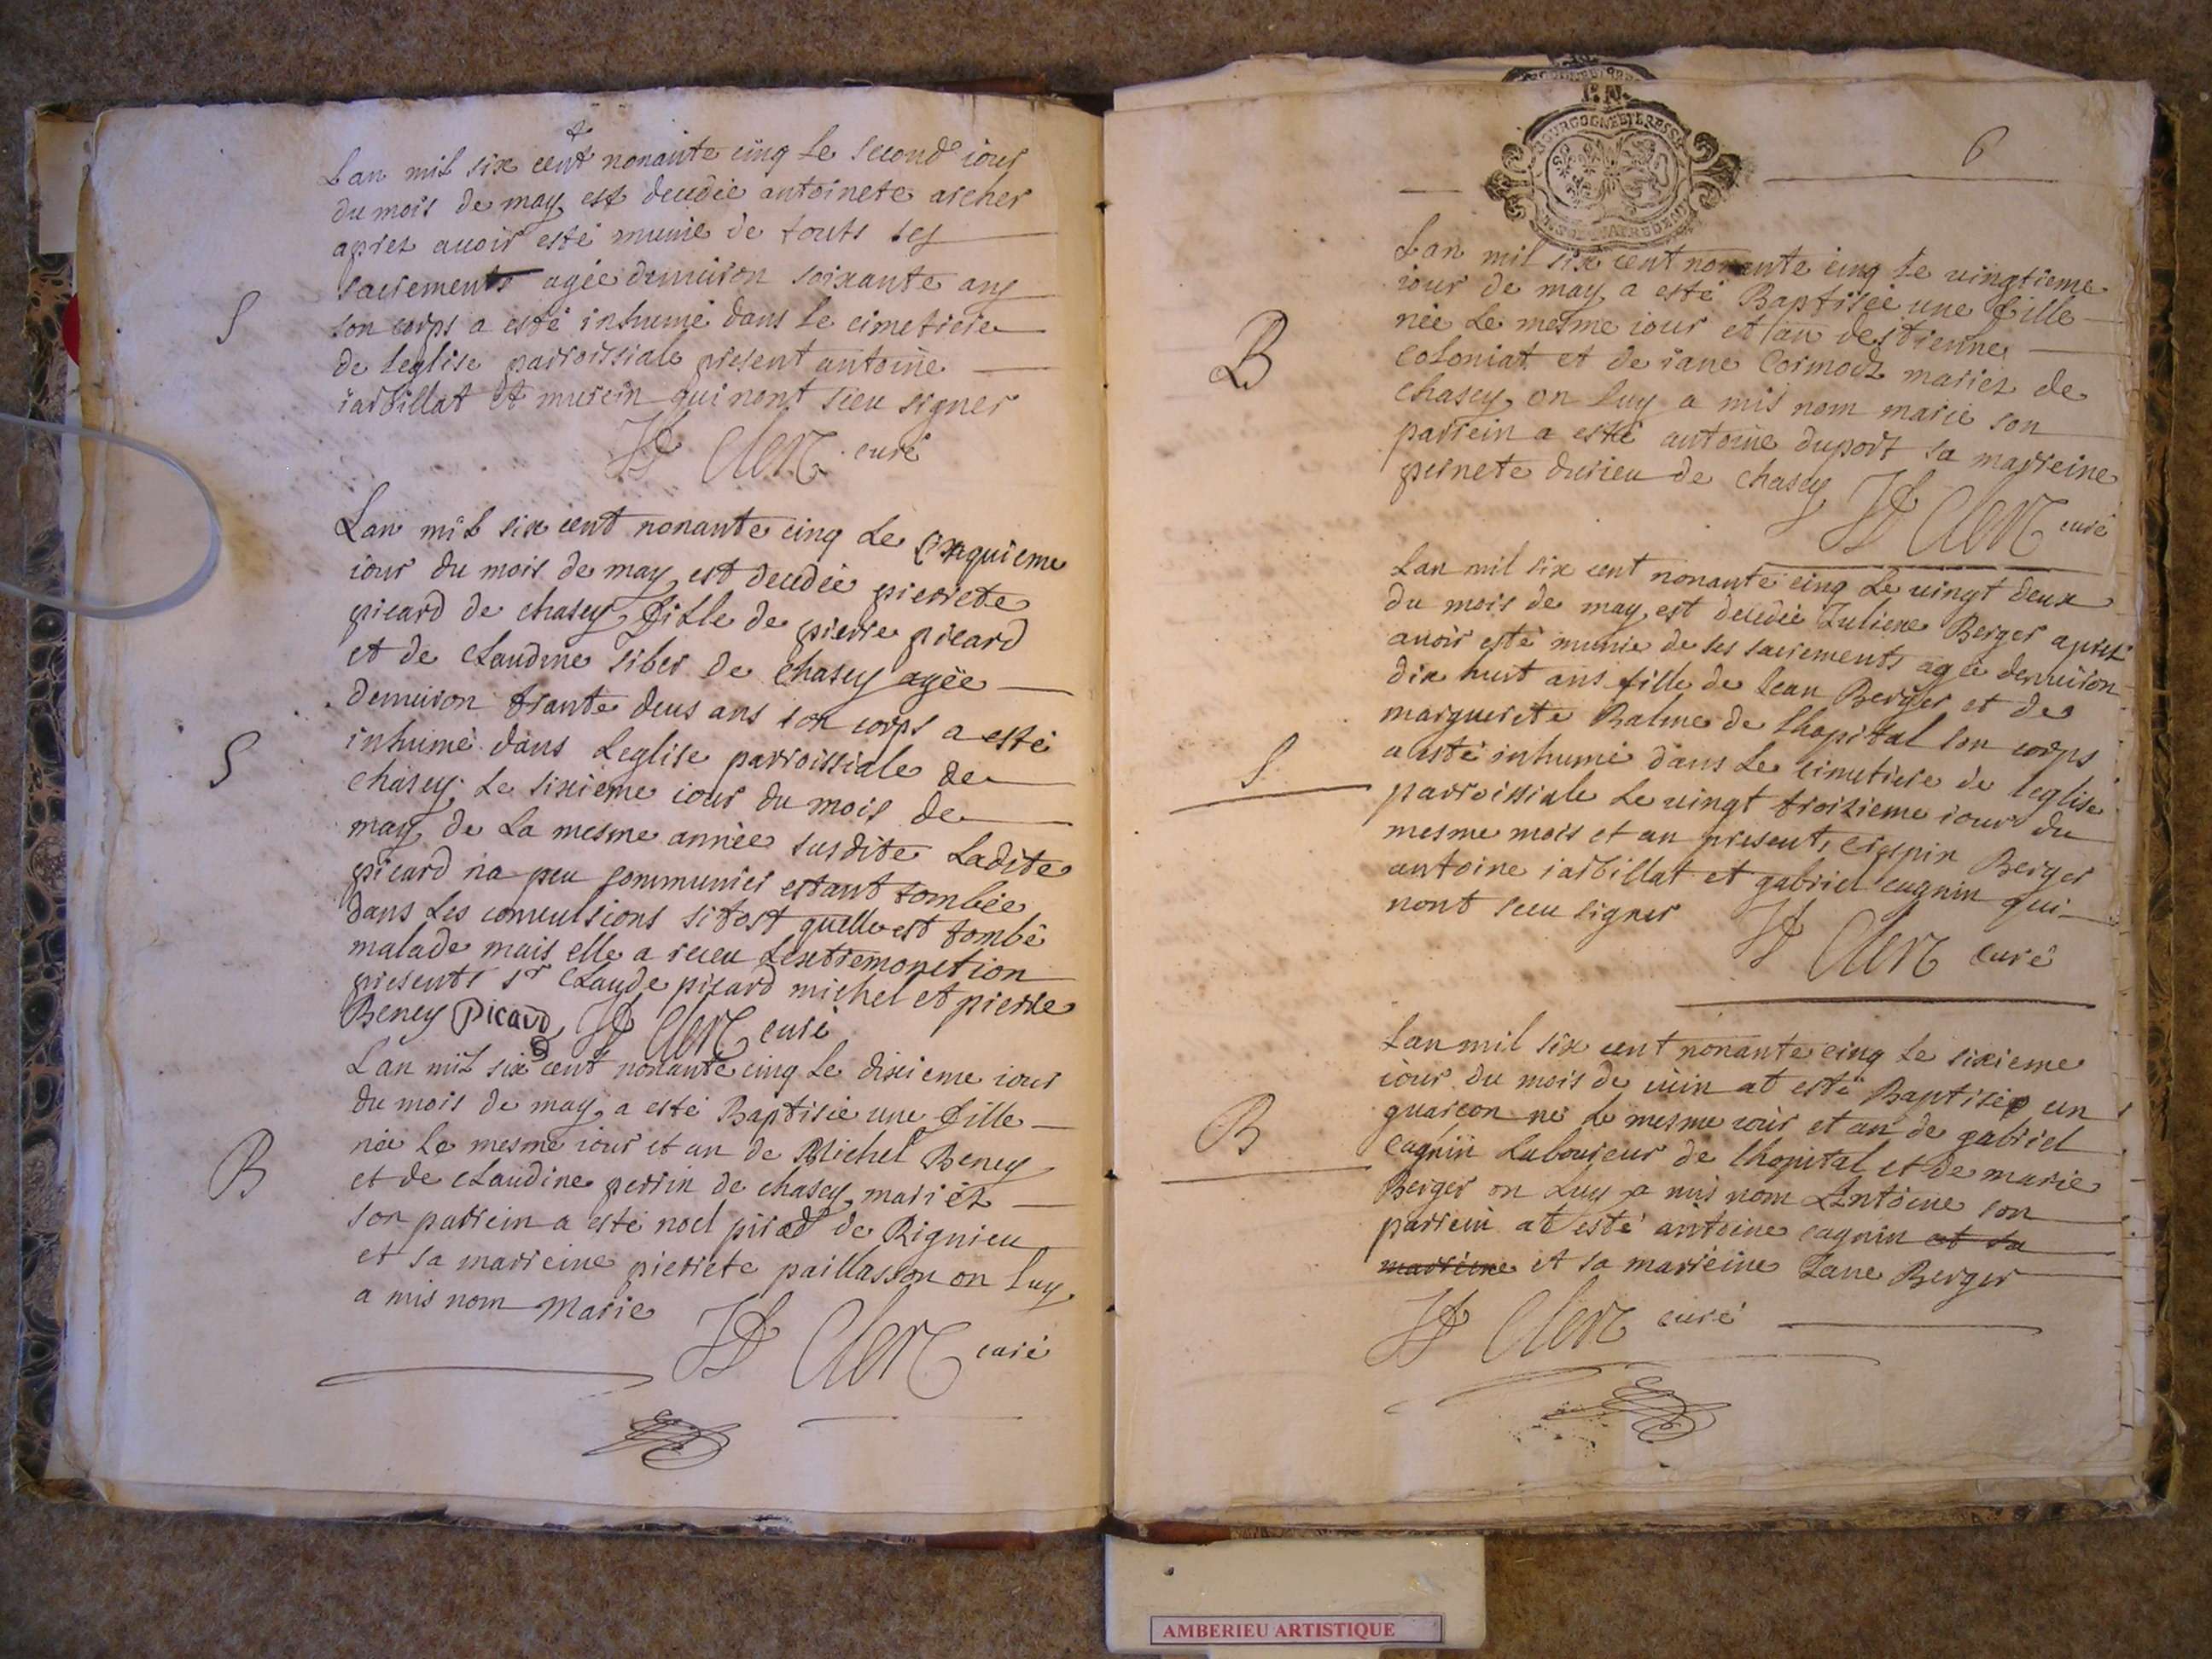 Lan mil six cent nonante cinq Le second iour
du mois de may est decedée antoinete archer
aprez auoir esté munie de touts ses
S
sacrements agée denuiron soixante ans
son corps a esté inhumé dans Le cimetiere
de leglise parroissiale present antoine
iarbillat et murcin qui nont sceu signer
Clerc curé
Lan mil six cent nonante cinq Le cinquieme
iour du mois de may est decedée pierrete
picard de chasey fille de pierre picard
et de Claudine siber de chasey agée
denuiron trante deus ans son corps a esté
S
inhumé dans Leglise parroissiale de
chasey Le sixieme iour du mois de
may de La mesme année susdite Ladite
picard na peu communier estant tombée
dans Les conuulsions sitost quelle est tombé
malade mais elle a receu Lextremonction
presents sr Claude picard michel et pierre
Beney picard Clerc curé
Lan mil six cent nonante cinq Le dixieme iour
du mois de may a esté Baptisée une fille
née Le mesme iour et an de Michel Beney
B
et de Claudine perrin de chasey mariéz
son parrein a esté noel de Rignieu
et sa marreine pierrete paillasson on luy
a mis nom Marie
Clerc curé
BOURGOGNE ET BRESSE
6
Lan mil six cent nonante cinq Le uingtieme
iour de may a esté Baptisée une fille
née Le mesme iour et an destienne
B
Coloniat et de iane Cormod mariez de
Chasey on luy a mis nom marie son
parrein a esté antoine duport sa marreine
pernete durieu de Chasey
Clerc curé
Lan mil six cent nonante cinq Le uingt deux
du mois de may est decedée Iuliene Berger aprez
auoir esté munie de ses sacrements agée denuiron
dix huit ans fille de Iean Berger et de
marguerite Balme de Lhopital son corps
S
a esté inhumé dans Le cimetiere de leglise
parroissiale Le uingt troizieme iour du
mesme mois et an presents crespin Berger
antoine iarbillat et gabriel cagnin qui
nont sceu signer
Clerc curé
Lan mil six cent nonante cinq Le sixieme
iour du mois de iuin at esté Baptisé un
guarcon né Le mesme iour et an de gabriel
B
Cagnin Laboureur de Lhopital et de marie
Berger on Luy a mis nom Antoine son
parrein at esté antoine cagnin et sa
marreine et sa marreine Iane Berger
Clerc curé
AMBERIEU ARTISTIQUE